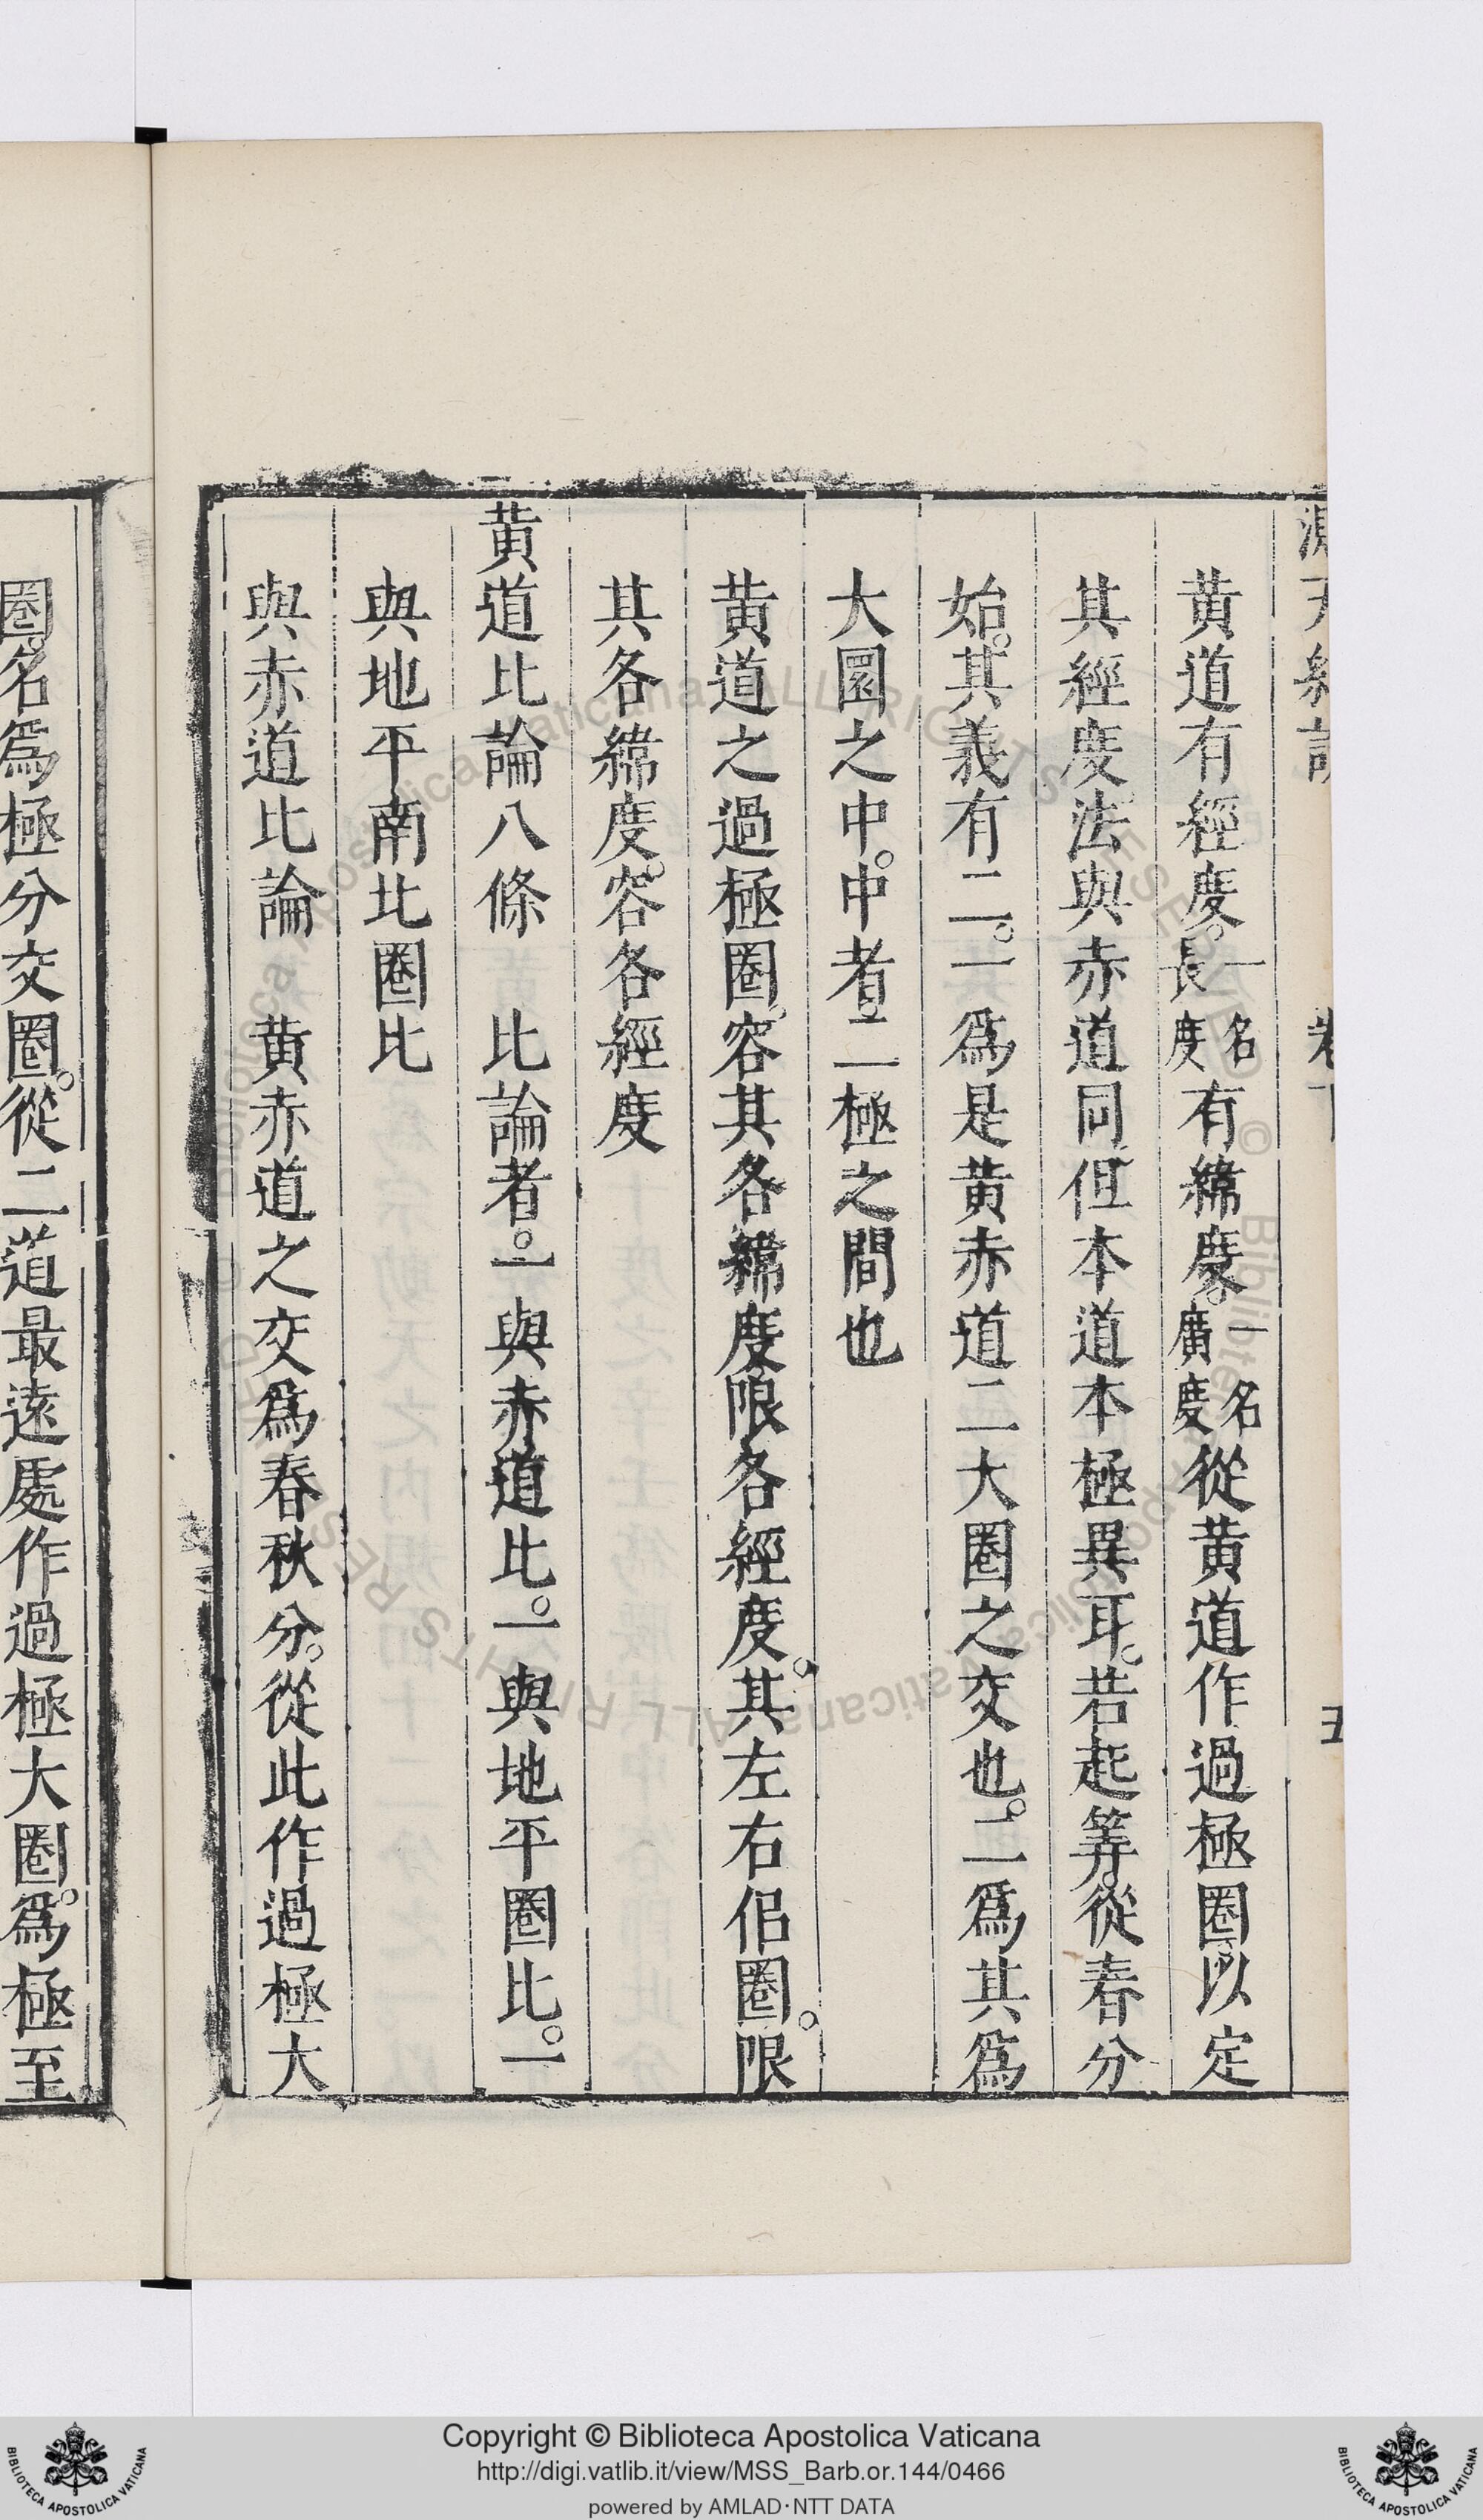 黄道有經度。一名長度有緯度。一名廣度從黄道作過極圈以定
其經度法與赤道同但本道本極異耳。若起筭。從春分
始。其義有二。一爲是黄赤道二大圈之交也。二爲其爲
大圜之中。中者。二極之間也
黄道之過極圈。容其各緯度。限各經度。其左右侶圈。限
其各緯度。容各經度
黄道比論八條　比論者。一與赤道比。一與地平圈比。一
與地平南北圈比
與赤道比論　黄赤道之交爲春秋分。從此作過極大
圈。名爲極分交圈。從二道最遠處作過極大圈。爲極至
卷
五
Copyright © Biblioteca Apostolica Vaticana
http://digi.vatlib.it/view/MSS_Barb.or.144/0466
powered by AMLAD·NTT DATA
BIBLIOTECA APOSTOLICA VATICANA
BIBLIOTECA APOSTOLICA VATICANA